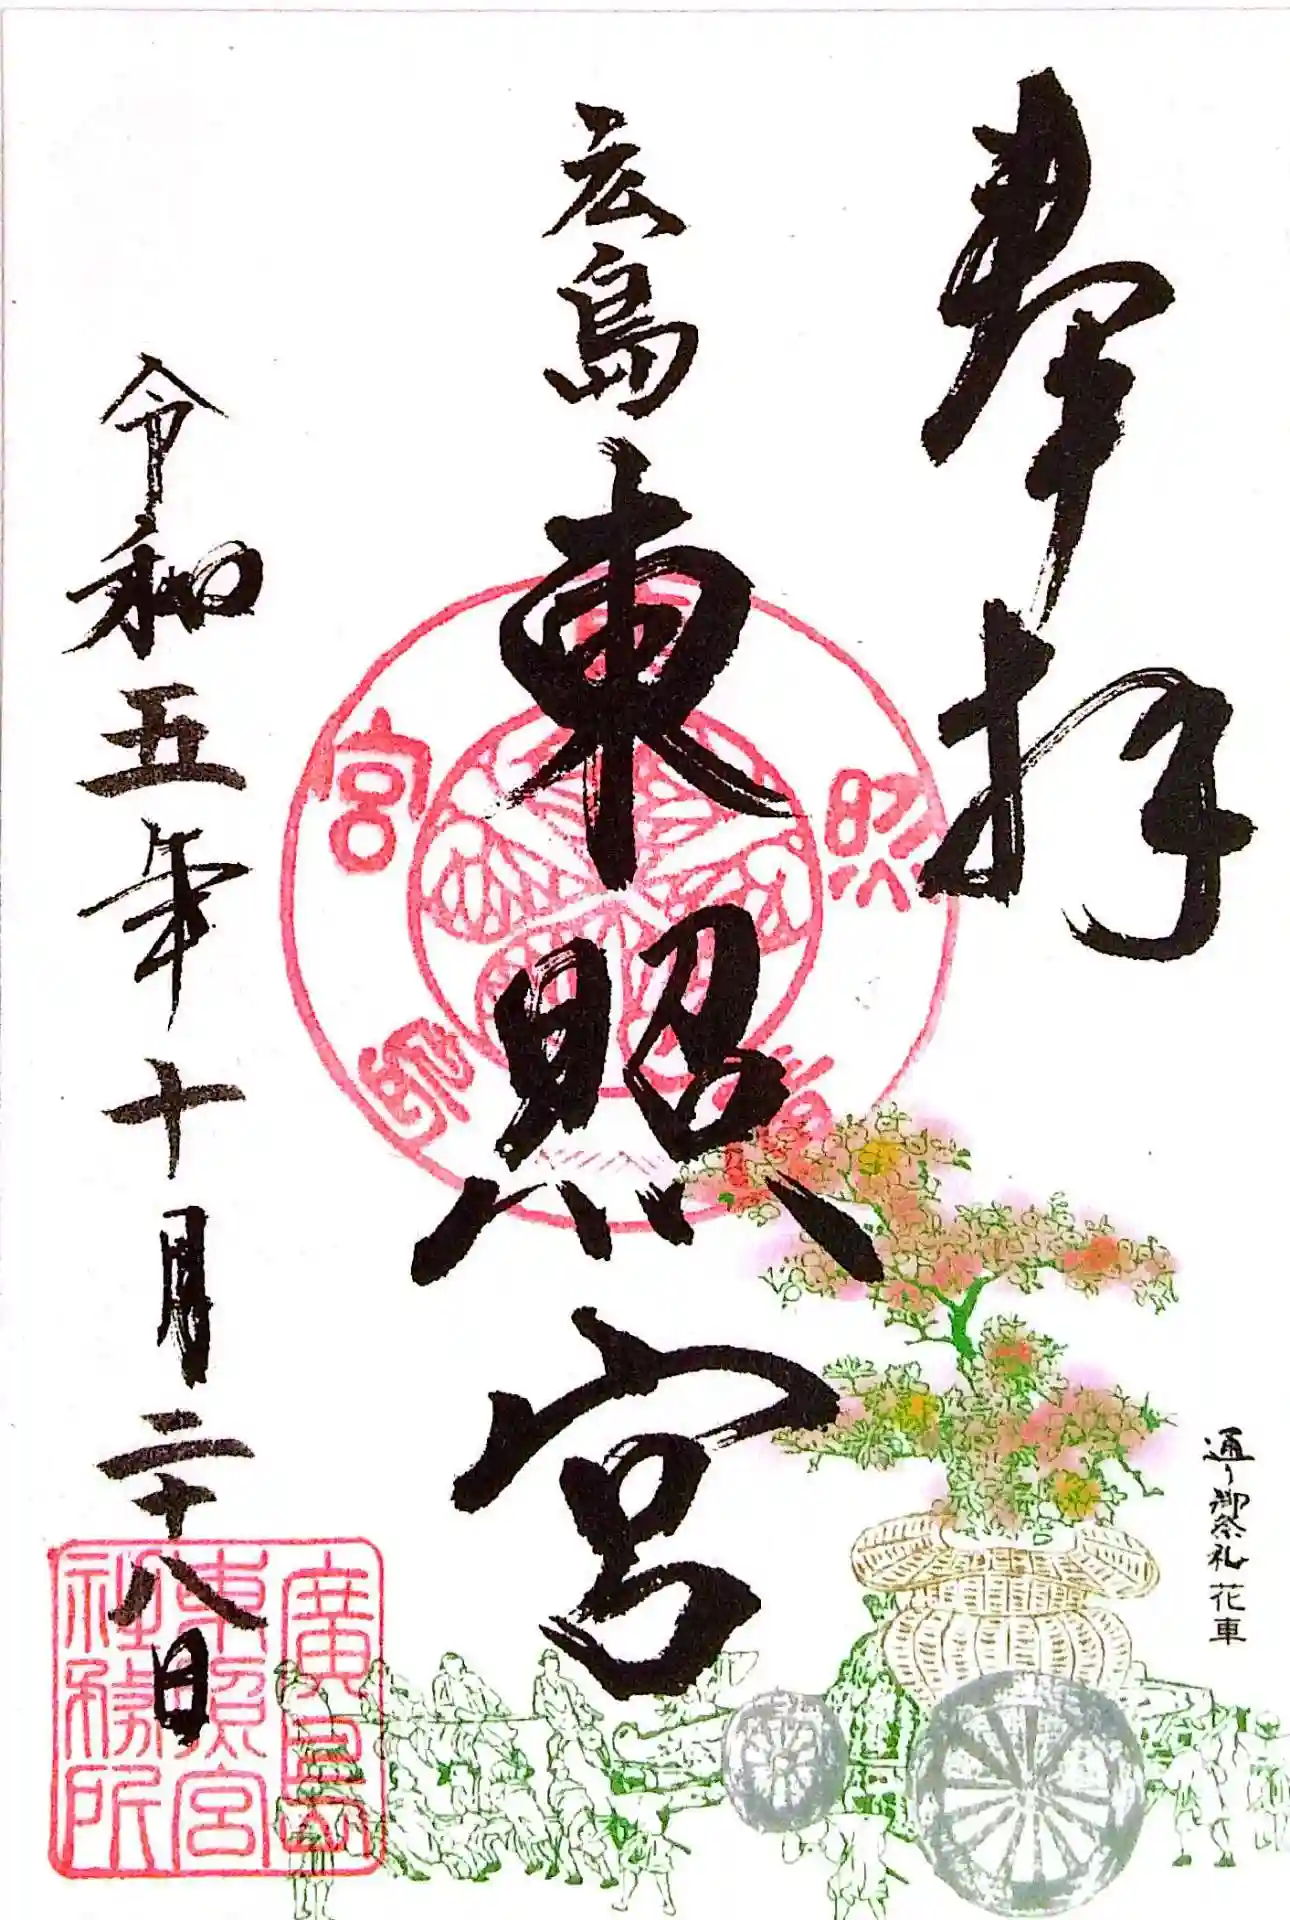 奉拝
広島
東照宮
令和五年十月二十八日
通り御祭礼 花車
廣島
東照宮
社務所